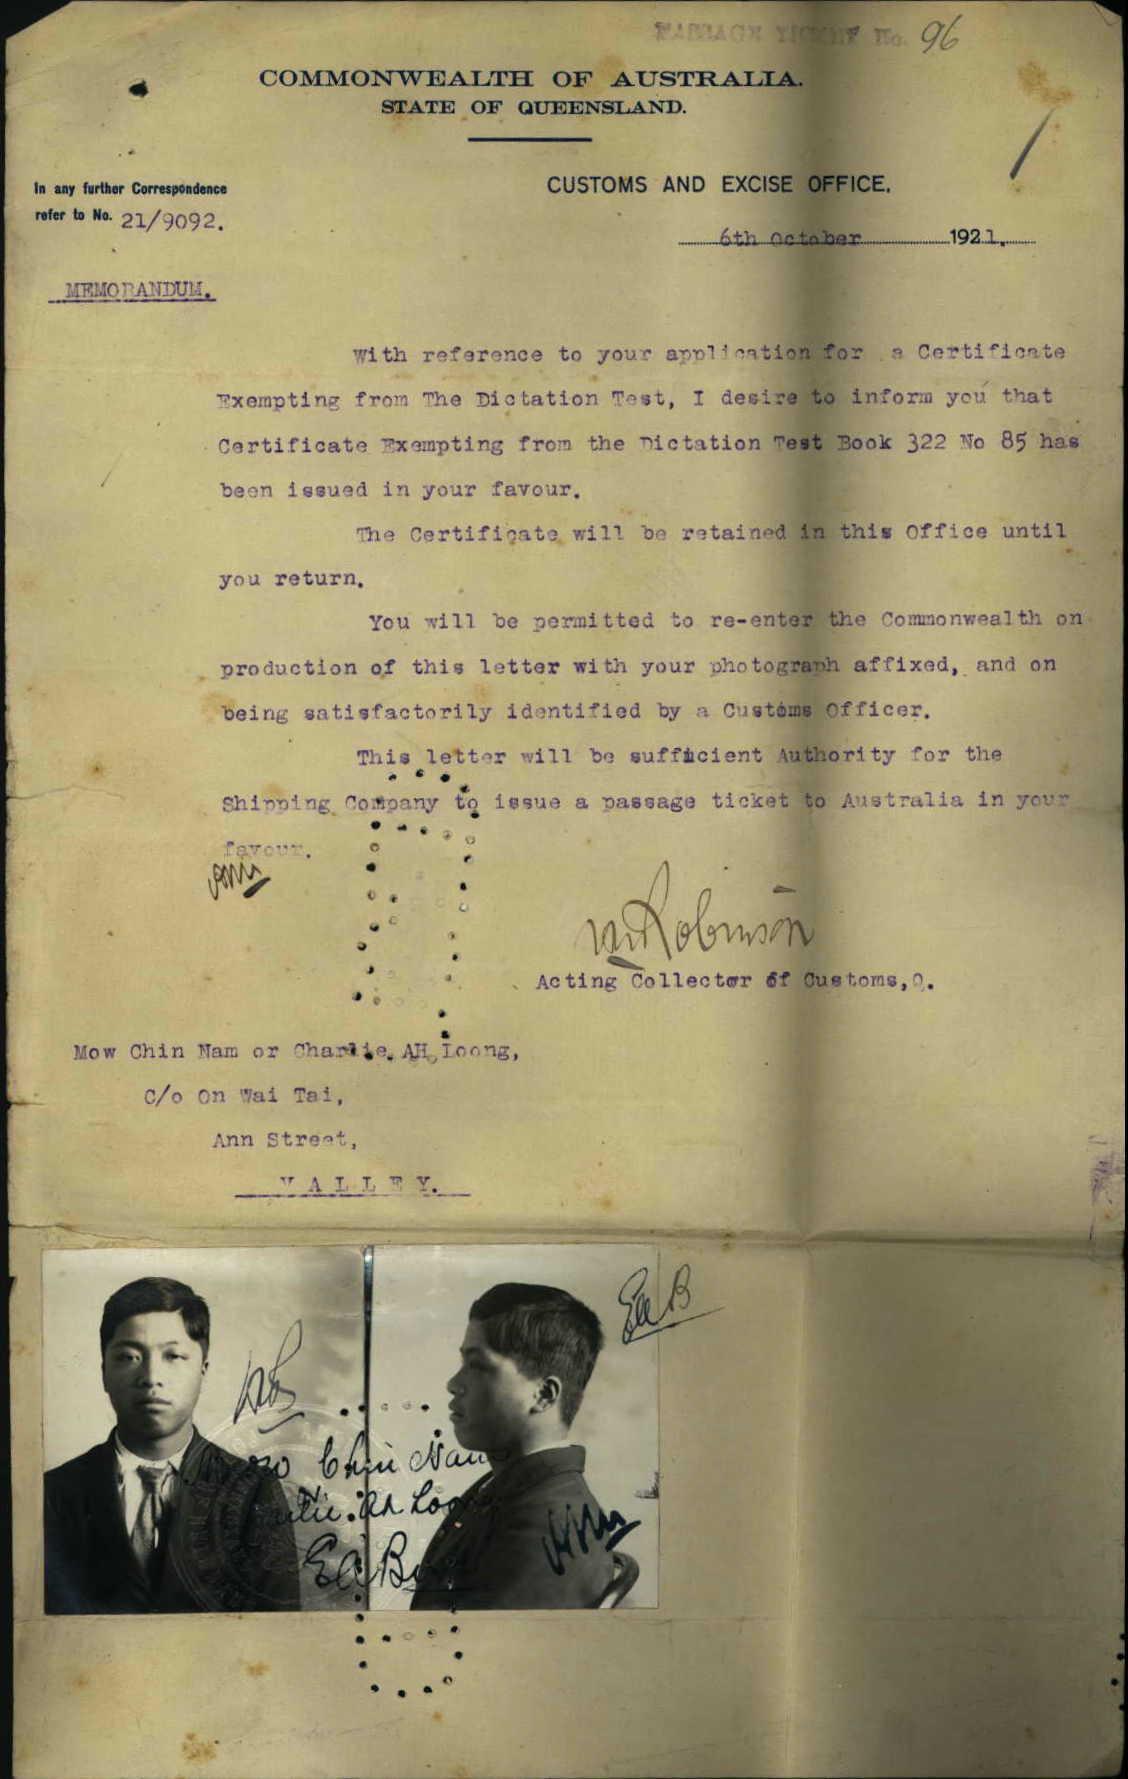 PASSAGE TICKET No. 96
COMMONWEALTH OF AUSTRALIA.
STATE OF QUEENSLAND.
In any further Correspondence
refer to No. 21/9092.
CUSTOMS AND EXCISE OFFICE.
6th October 1921.
MEMORANDUM.
With reference to your application for a Certificate
Exempting from The Dictation Test, I desire to inform you that
Certificate Exempting from the Dictation Test Book 322 No 85 has
been issued in your favour.
The Certificate will be retained in this Office until
you return.
You will be permitted to re-enter the Commonwealth on
production of this letter with your photograph affixed, and on
being satisfactorily identified by a Customs Officer.
This letter will be sufficient Authority for the
Shipping Company to issue a passage ticket to Australia in your
favour.
Robinson
Acting Collector of Customs, Q.
Mow Chin Nam or Charlie AH Loong,
C/o On Wai Tai,
Ann Street,
VALLEY.
EaB
Mow Chin Nam
Charlie Ah Loong